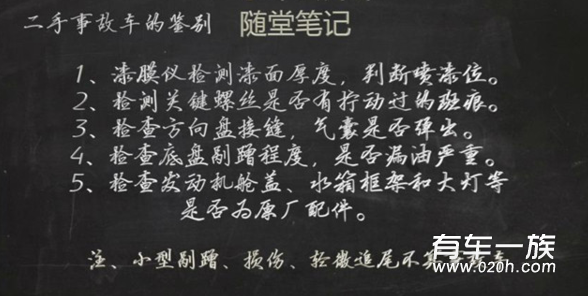 二手事故车的鉴别 随堂笔记
1、漆膜仪检测漆面厚度，判断喷漆位。
2、检测关键螺丝是否有拧动过的斑痕。
3、检查方向盘接缝，气囊是否弹出。
4、检查底盘剐蹭程度，是否漏油严重。
5、检查发动机舱盖、水箱框架和大灯等
是否为原厂配件。
注、小型剐蹭、损伤、轻微追尾不算
有车一族
www.020h.com